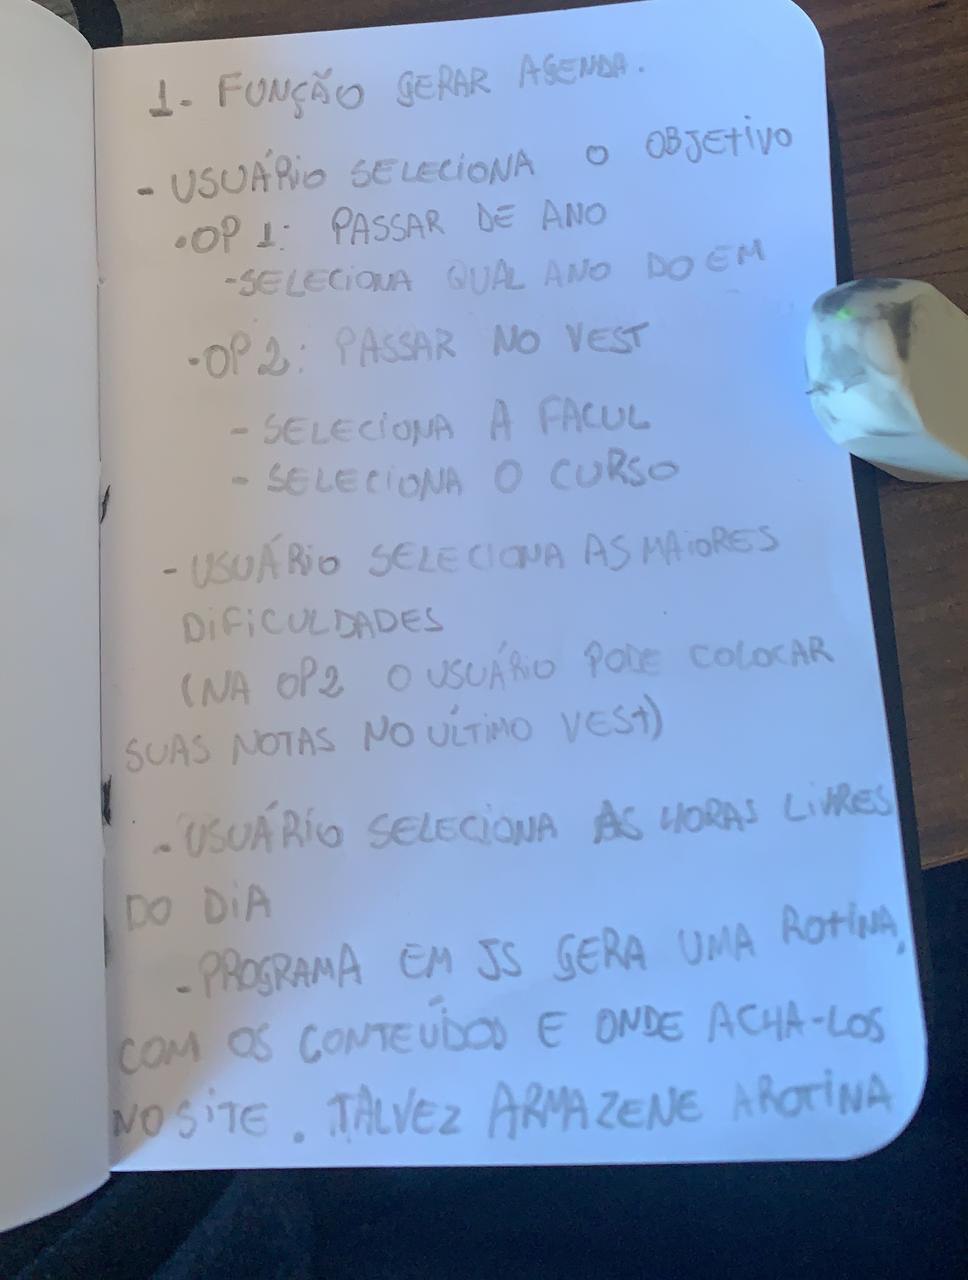 1- FUNÇÃO GERAR AGENDA.
- USUÁRIO SELECIONA O OBJETIVO
•OP 1: PASSAR DE ANO
-SELECIONA QUAL ANO DO EM
•OP 2: PASSAR NO VEST
- SELECIONA A FACUL
- SELECIONA O CURSO
- USUÁRIO SELECIONA AS MAIORES
DIFICULDADES
(NA OP2 O USUÁRIO PODE COLOCAR
SUAS NOTAS NO ÚLTIMO VEST)
- USUÁRIO SELECIONA AS HORAS LIVRES
DO DIA
- PROGRAMA EM JS GERA UMA ROTINA,
COM OS CONTEÚDOS E ONDE ACHA-LOS
NO SITE. TALVEZ ARMAZENE A ROTINA